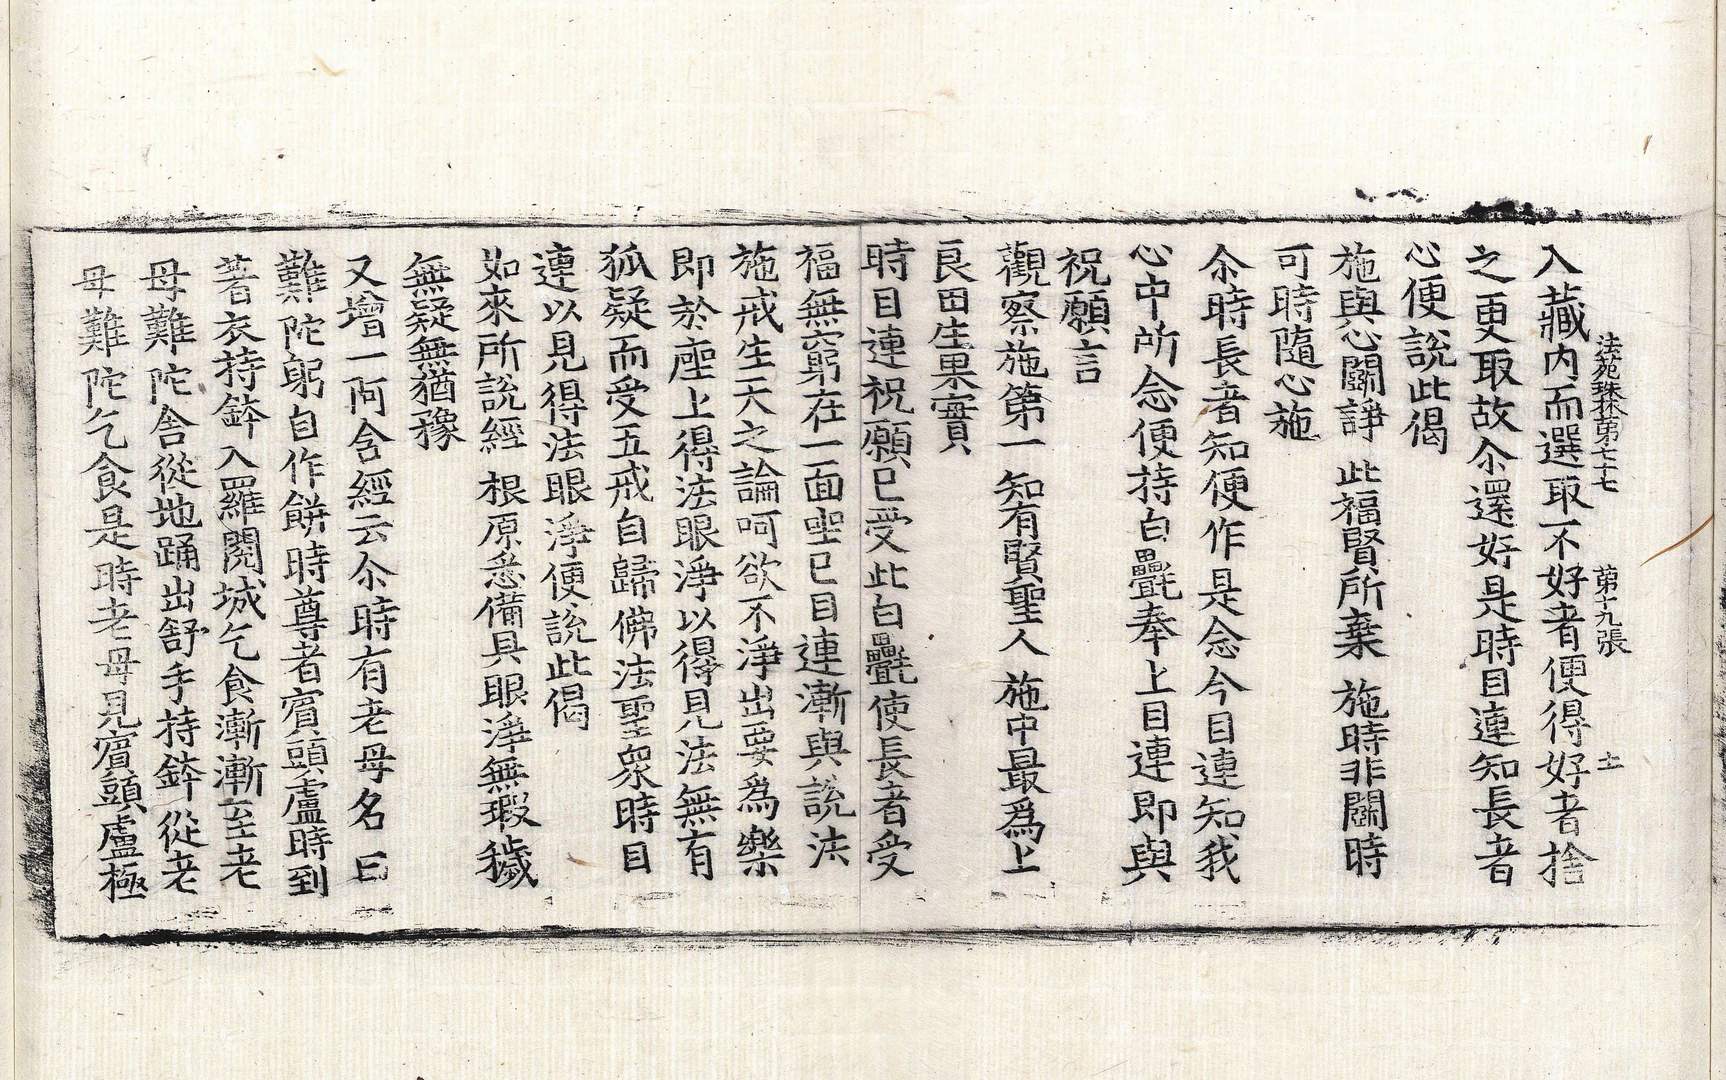 法苑珠林第七十七 第十九張 士
入藏內而選取不好者便得好者捨
之更取故尒還好是時目連知長者
心便說此偈
施與心鬪諍 此福賢所棄 施時非鬪時
可時隨心施
尒時長者知便作是念今目連知我
心中所念便持白㲲奉上目連即與
祝願言
觀察施第一 知有賢聖人 施中最爲上
良田生果實
時目連祝願已受此白㲲使長者受
福無窮在一面坐已目連漸與說法
施戒生天之論呵欲不淨出要爲樂
即於座上得法眼淨以得見法無有
狐疑而受五戒自歸佛法聖衆時目
連以見得法眼淨便說此偈
如來所說經 根原悉備具 眼淨無瑕穢
無疑無猶豫
又增一阿含經云尒時有老母名曰
難陀躬自作餅時尊者賓頭盧時到
著衣持鉢入羅閱城乞食漸漸至老
母難陀舍從地踊出舒手持鉢從老
母難陀乞食是時老母見賓頭盧極